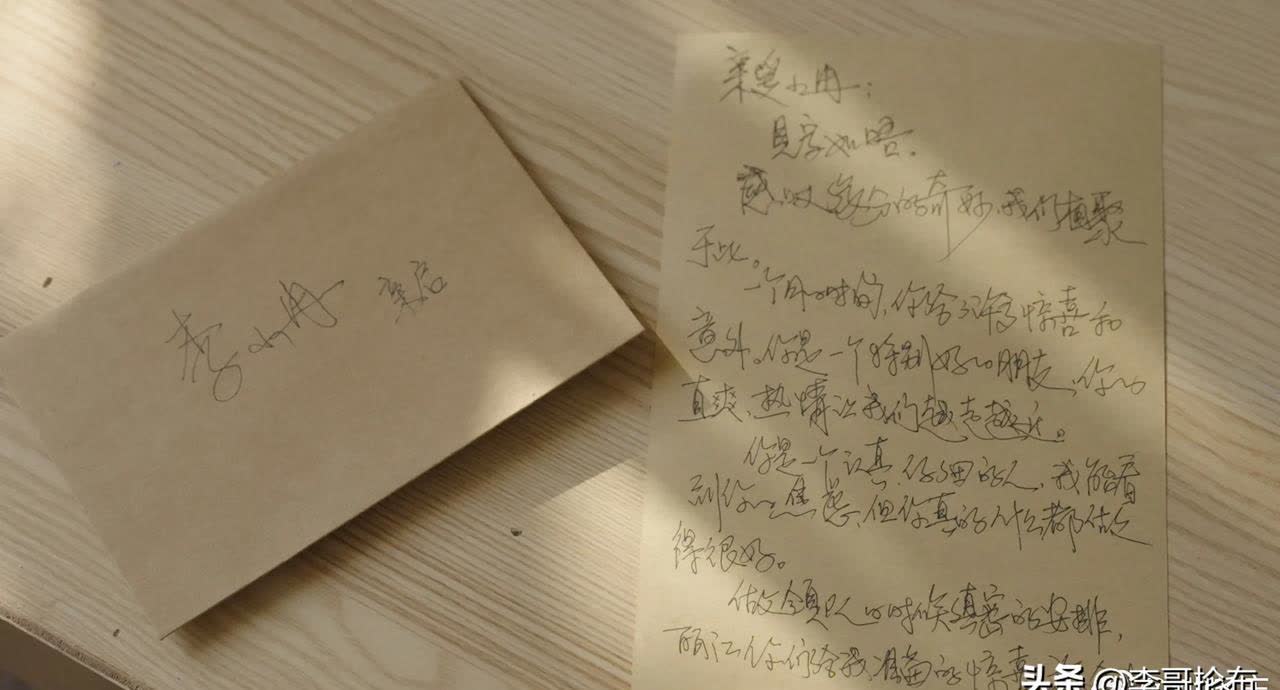 李小冉 亲启
亲爱小冉：
见字如唔.
感叹缘分的奇妙,我们相聚
于此。
一个月的时间,你给了许多惊喜和
意外。你是一个特别好的朋友,你的
直爽、热情让我们越走越近。
你是一个认真、仔细的人,我能看
到你的焦虑,但你真的什么都做
得很好。
做领队的时候缜密的安排,
丽江你们给我准备的惊喜
头条 @李哥抡布